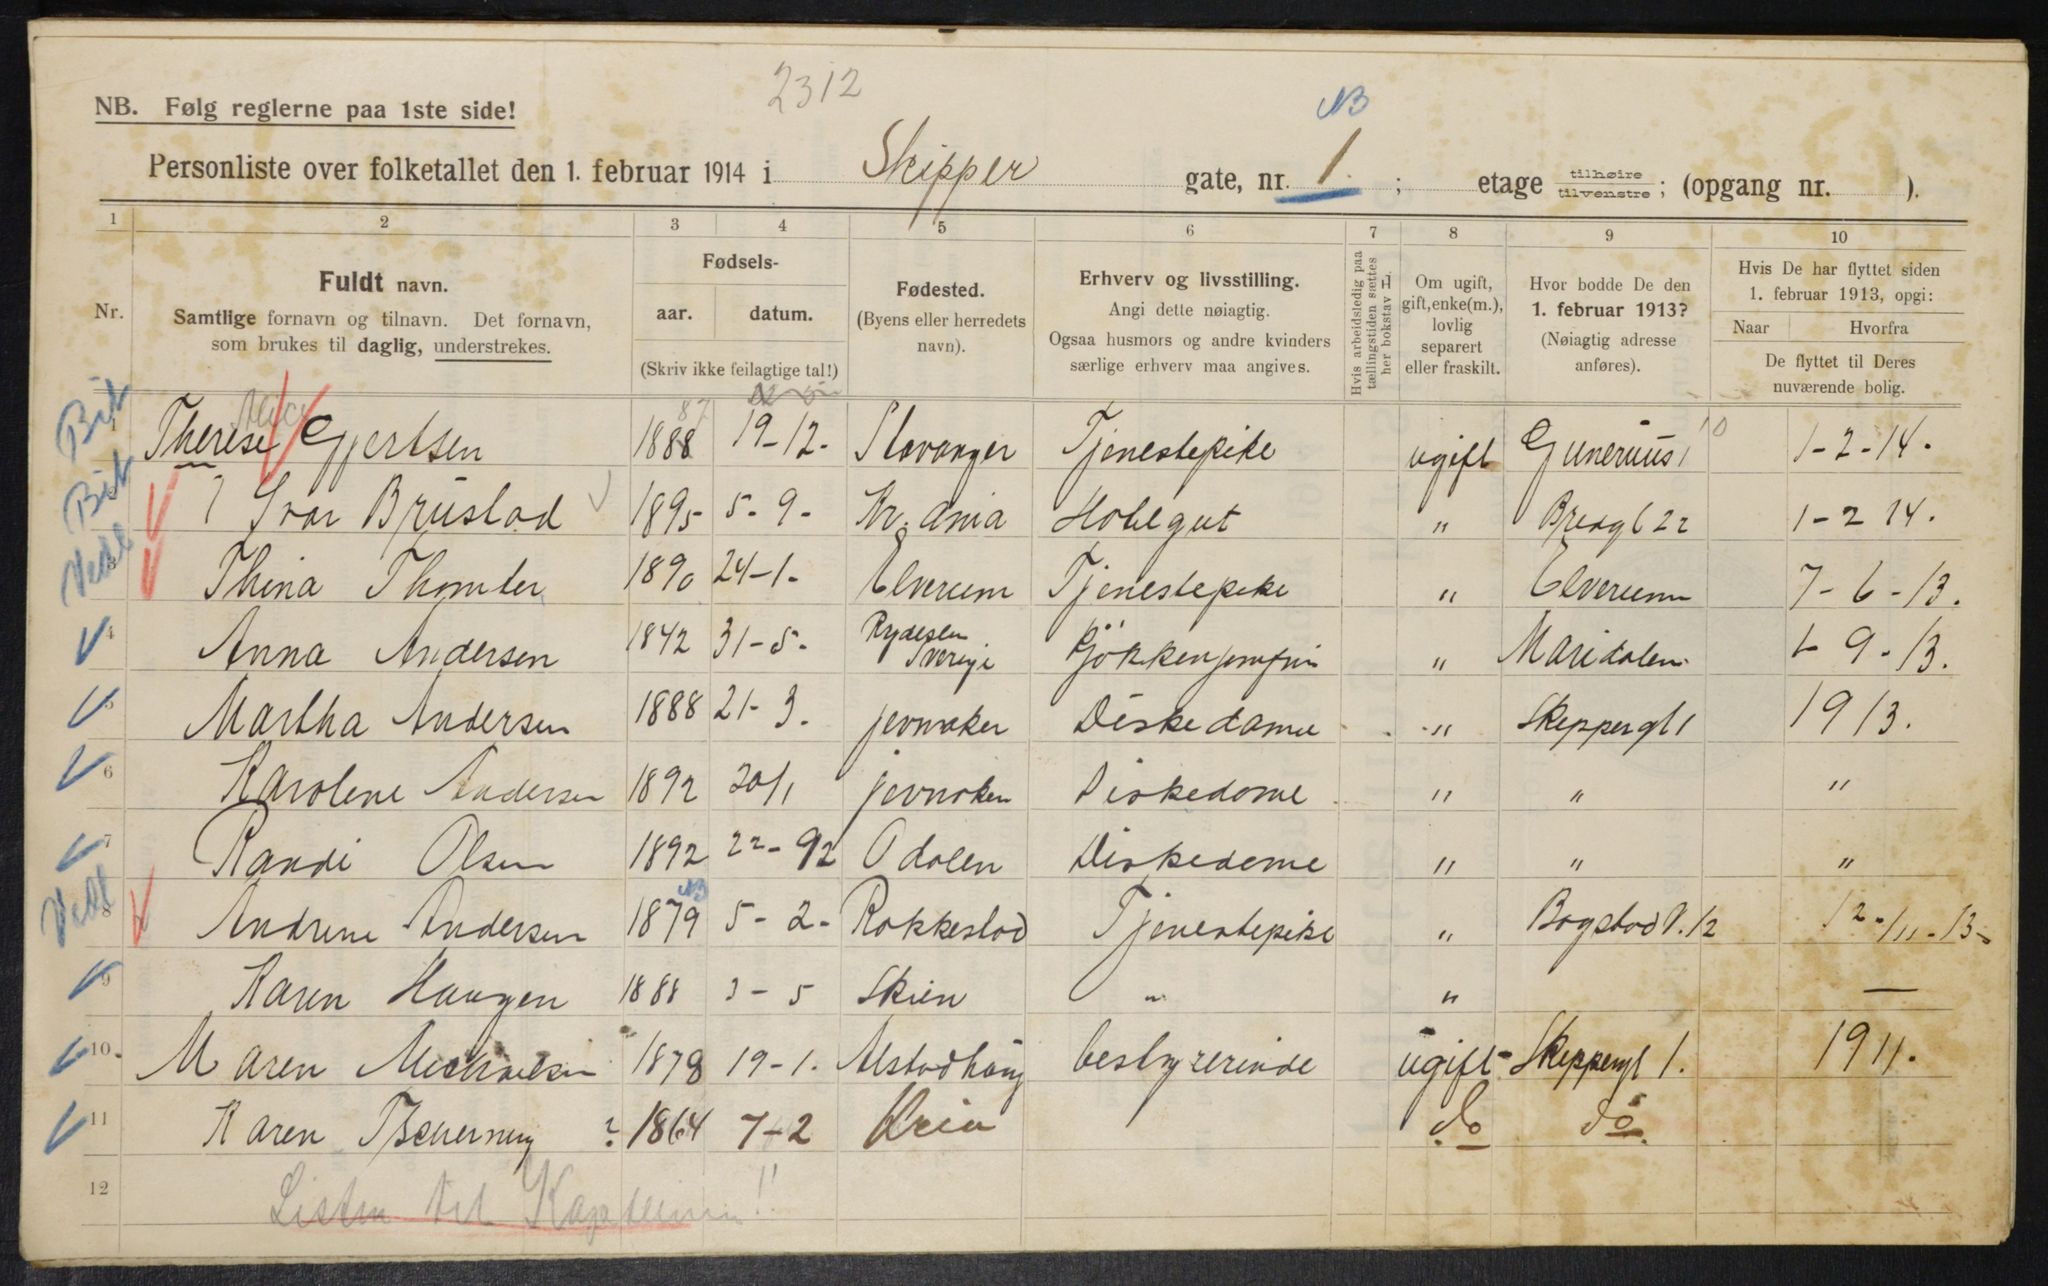 2312
NB. Følg reglerne paa 1ste side!
NB
Personliste over folketallet den 1. februar 1914 i Skipper gate, nr. 1. ; etage tilhøire tilvenstre ; (opgang nr. ).
1 2 3 4 5 6 7 8 9 10
Nr.
Fuldt navn.
Samtlige fornavn og tilnavn. Det fornavn, som brukes til daglig, understrekes.
Fødsels-
aar. datum.
(Skriv ikke feilagtige tal!)
Fødested.
(Byens eller herredets navn).
Erhverv og livsstilling.
Angi dette nøiagtig.
Ogsaa husmors og andre kvinders særlige erhverv maa angives.
Hvis arbeidsledig paa tællingstiden sættes her bokstav L
Om ugift, gift, enke(m.), lovlig separert eller fraskilt.
Hvor bodde De den 1. februar 1913?
(Nøiagtig adresse anføres).
Hvis De har flyttet siden 1. februar 1913, opgi:
Naar Hvorfra
De flyttet til Deres nuværende bolig.
Therese Gjertsen 1888 87 19-12- Stavanger Tjenestepike ugift Gunerius 10 1-2-14.
Ivar Brustad 1895 5-9- Kr.ania Hotelgut " Bredgt 22 1-2 14.
3 Thina Thomter 1890 24-1- Elverum Tjenestepike " Elverum 7-6-13.
4 Anna Andersen 1842 31-5- Sverige Kjökkenjomfru " Maridalen 1-9-13.
5 Martha Andersen 1888 21-3. jevnaker Diskedame " Skippergt 1 1913.
6 Karolene Andersen 1892 20/1 jevnaken Diskedame " " "
7 Randi Olsen 1892 22-92 Odalen Diskedame " " "
8 Andrine Andersen 1879 NB 5-2- Rakkestad Tjenestepike " Bogstad V. 12 12-/11-13-
9 Karen Haugen 1888 3-5 Skien " " —
10. Maren Michaelsen 1878 19-1. Alstadhaug bestyrerinde ugift- Skippergt 1. 1911.
11 Karen Tscherning ? 1864 7-2 Kria do do.
12 Listen til Kapteinen!!